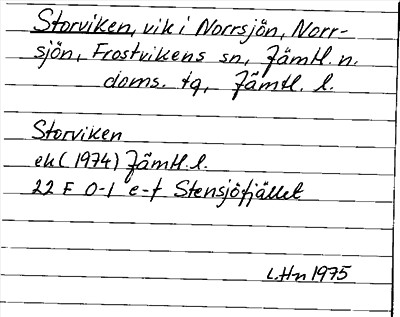 Storviken, vik i Norrsjön, Norr-
sjön, Frostvikens sn, Jämtl. n.
doms. tg, Jämtl. l.
Storviken
ek (1974) Jämtl. l.
22 F 0-1 e-f Stensjöfjället
L.Hn 1975